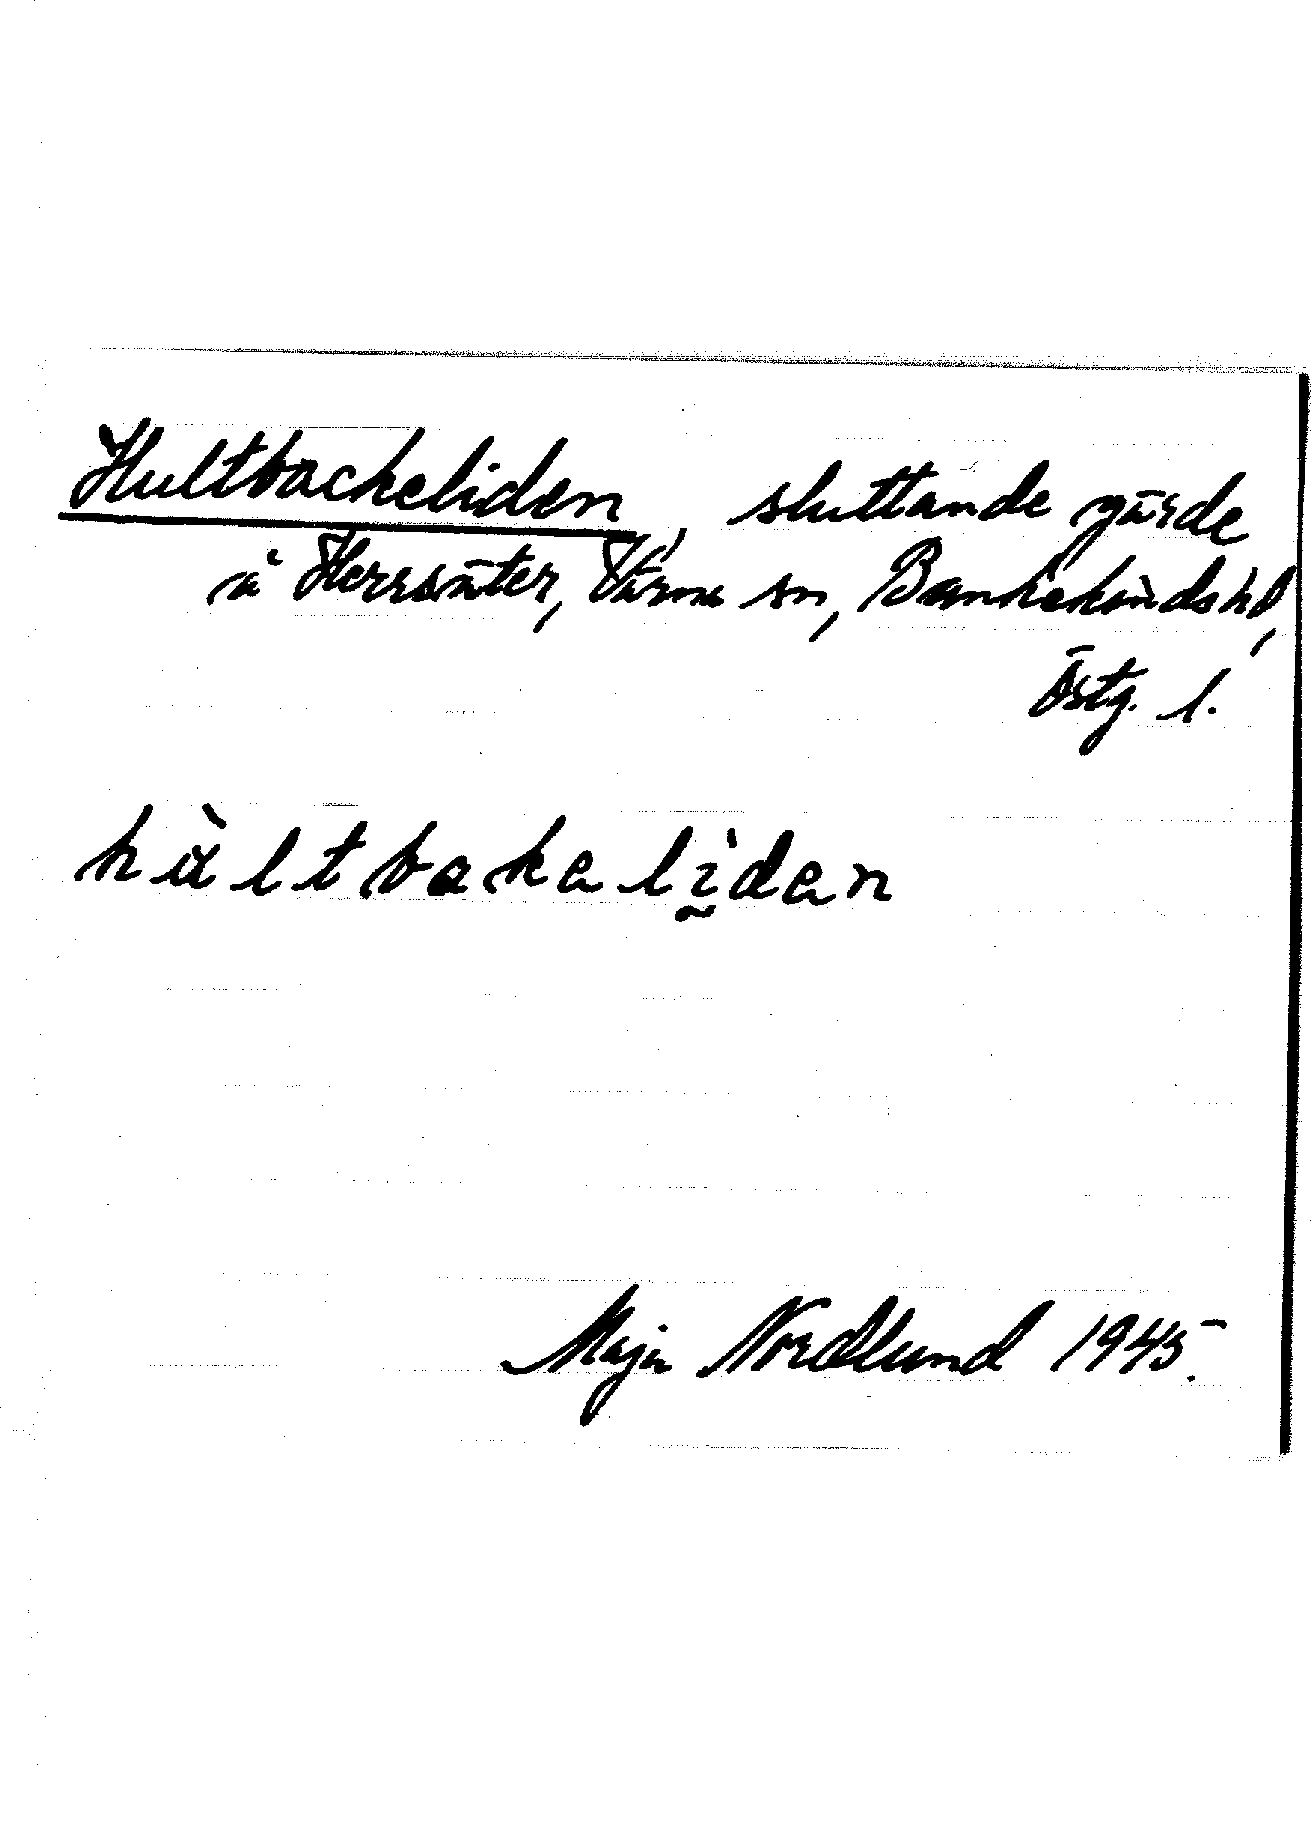 Hultbackeliden, sluttande gärde
å Herrsäter, Värna sn, Bankekinds hd,
Östg. l.
hùltbakalìdan
Maja Nordlund 1945.